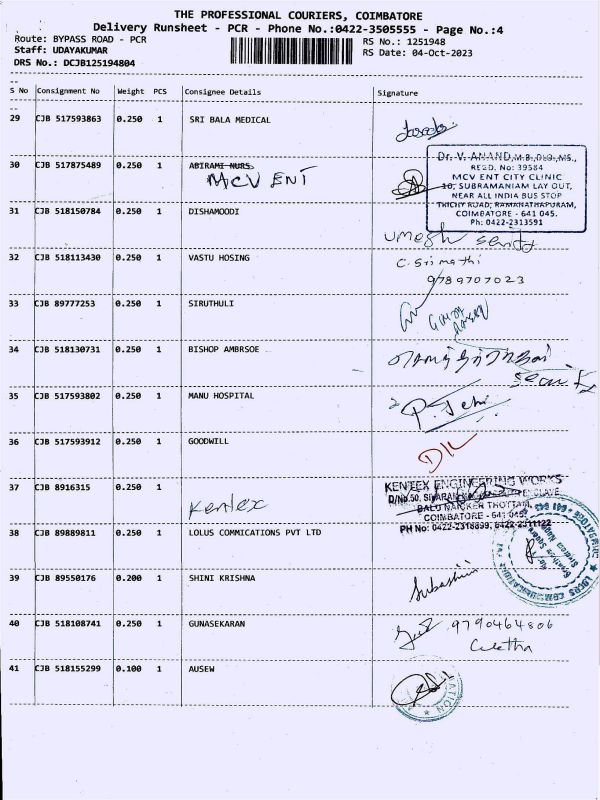 THE PROFESSIONAL COURIERS, COIMBATORE
Delivery Runsheet - PCR - Phone No.:0422-3505555 - Page No.:4
Route: BYPASS ROAD - PCR
RS No.: 1251948
Staff: UDAYAKUMAR
RS Date: 04-Oct-2023
DRS No.: DCJB125194804
S No Consignment No Weight PCS Consignee Details Signature
29 CJB 517593863 0.250 1 SRI BALA MEDICAL
Dr. V. ANAND, M.B., D.L.O., M.S.,
REGD. No: 39584
MCV ENT CITY CLINIC
10, SUBRAMANIAM LAY OUT,
NEAR ALL INDIA BUS STOP
TRICHY ROAD, RAMANATHAPURAM,
COIMBATORE - 641 045.
Ph: 0422-2313591
30 CJB 517875489 0.250 1 ABIRAMI NURS
MCV ENT
31 CJB 518150784 0.250 1 DISHAMOODI
umesh
32 CJB 518113430 0.250 1 VASTU HOSING
C. Srimathi
9789707023
33 CJB 89777253 0.250 1 SIRUTHULI
34 CJB 518130731 0.250 1 BISHOP AMBRSOE
35 CJB 517593802 0.250 1 MANU HOSPITAL
36 CJB 517593912 0.250 1 GOODWILL
37 CJB 8916315 0.250 1
Kentex
KENTEX ENGINEERING WORKS
BALU NAICKER THOTTAM,
COIMBATORE - 641 045.
38 CJB 89889811 0.250 1 LOLUS COMMICATIONS PVT LTD
39 CJB 89550176 0.200 1 SHINI KRISHNA
Subashini
40 CJB 518108741 0.250 1 GUNASEKARAN
9790464806
41 CJB 518155299 0.100 1 AUSEW